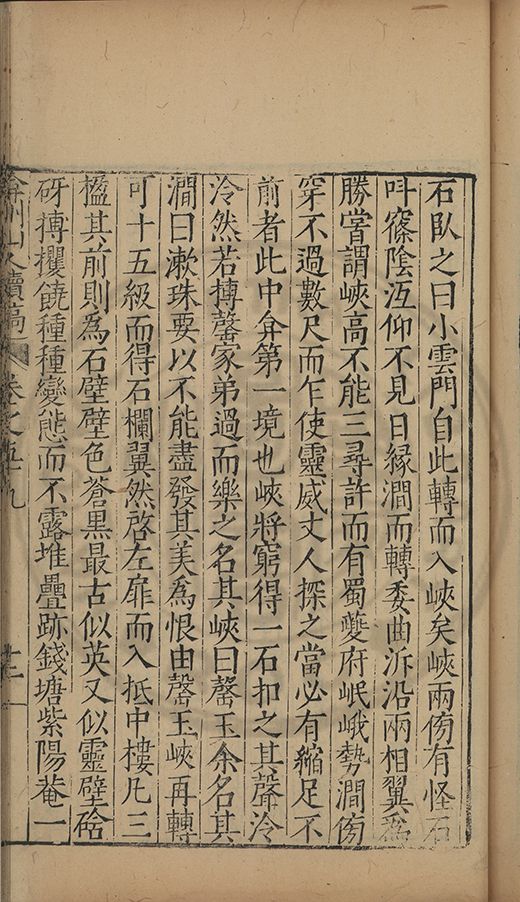 石臥之曰小雲門自此轉而入峽矣峽兩傍有怪石
呌窱陰冱仰不見日緣澗而轉委曲泝沿兩相翼為
勝嘗謂峽高不能三尋許而有蜀夔府岷峨勢澗傍
穿不過數尺而乍使靈威丈人探之當必有縮足不
前者此中弇第一境也峽將窮得一石扣之其聲泠
泠然若摶罄家弟過而樂之名其峽曰罄玉余名其
澗曰漱珠要以不能盡發其美為恨由罄玉峽再轉
可十五級而得石欄翼然啓左扉而入抵中樓凡三
楹其前則為石壁壁色蒼黑最古似英又似靈壁硆
砑摶攫饒種種變態而不露堆疊跡錢塘紫陽菴一
弇州山人續稿 卷之五十九 十二